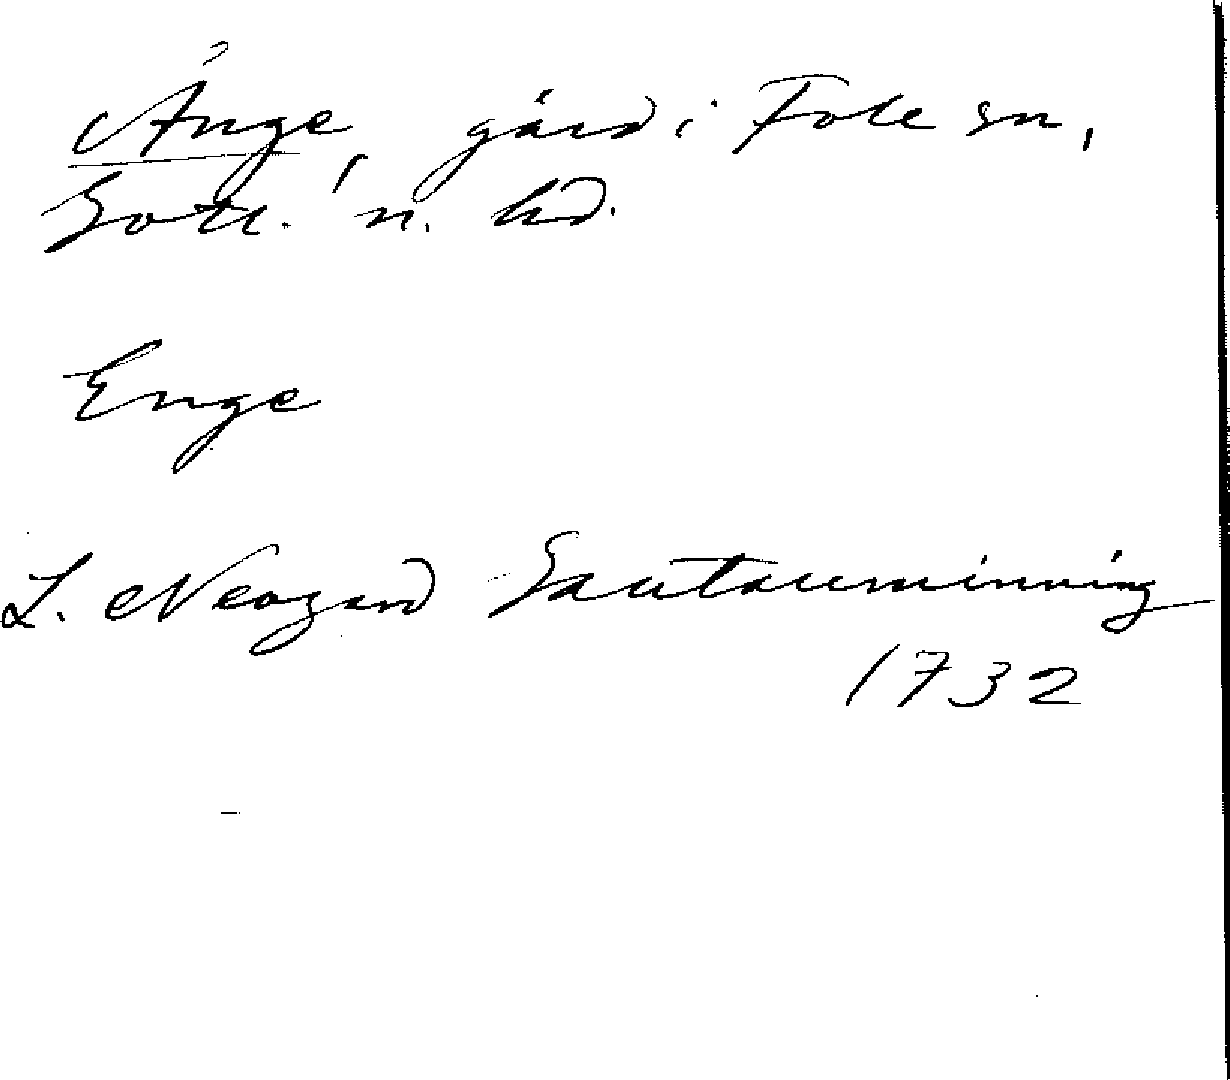 Änge, gård i Fole sn,
Gotl. n. hd.
Enge
L. Neogard Gautauminning
1732